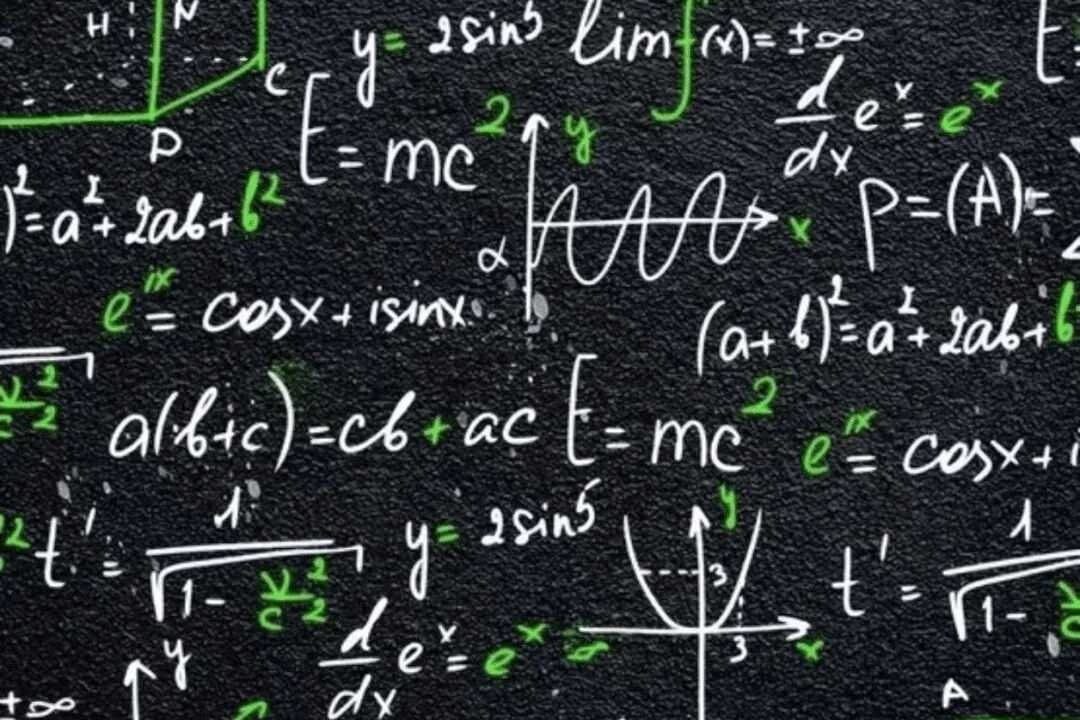 H N
C
D
y = 2sin5 lim f(x) = ±∞
E = mc²
y
x
α
d/dx eˣ = eˣ
P = (A) =
)² = a² + 2ab + b²
e^ix = cosx + isinx
(a + b)² = a² + 2ab + b
v²/c²
a(b+c) = cb + ac
E = mc²
e^ix = cosx + i
2
t' = 1/√(1 - v²/c²)
y = 2sin5
y
3
3
x
t' = 1/√(1 - v/c
d/dx eˣ = eˣ
y
±∞
A